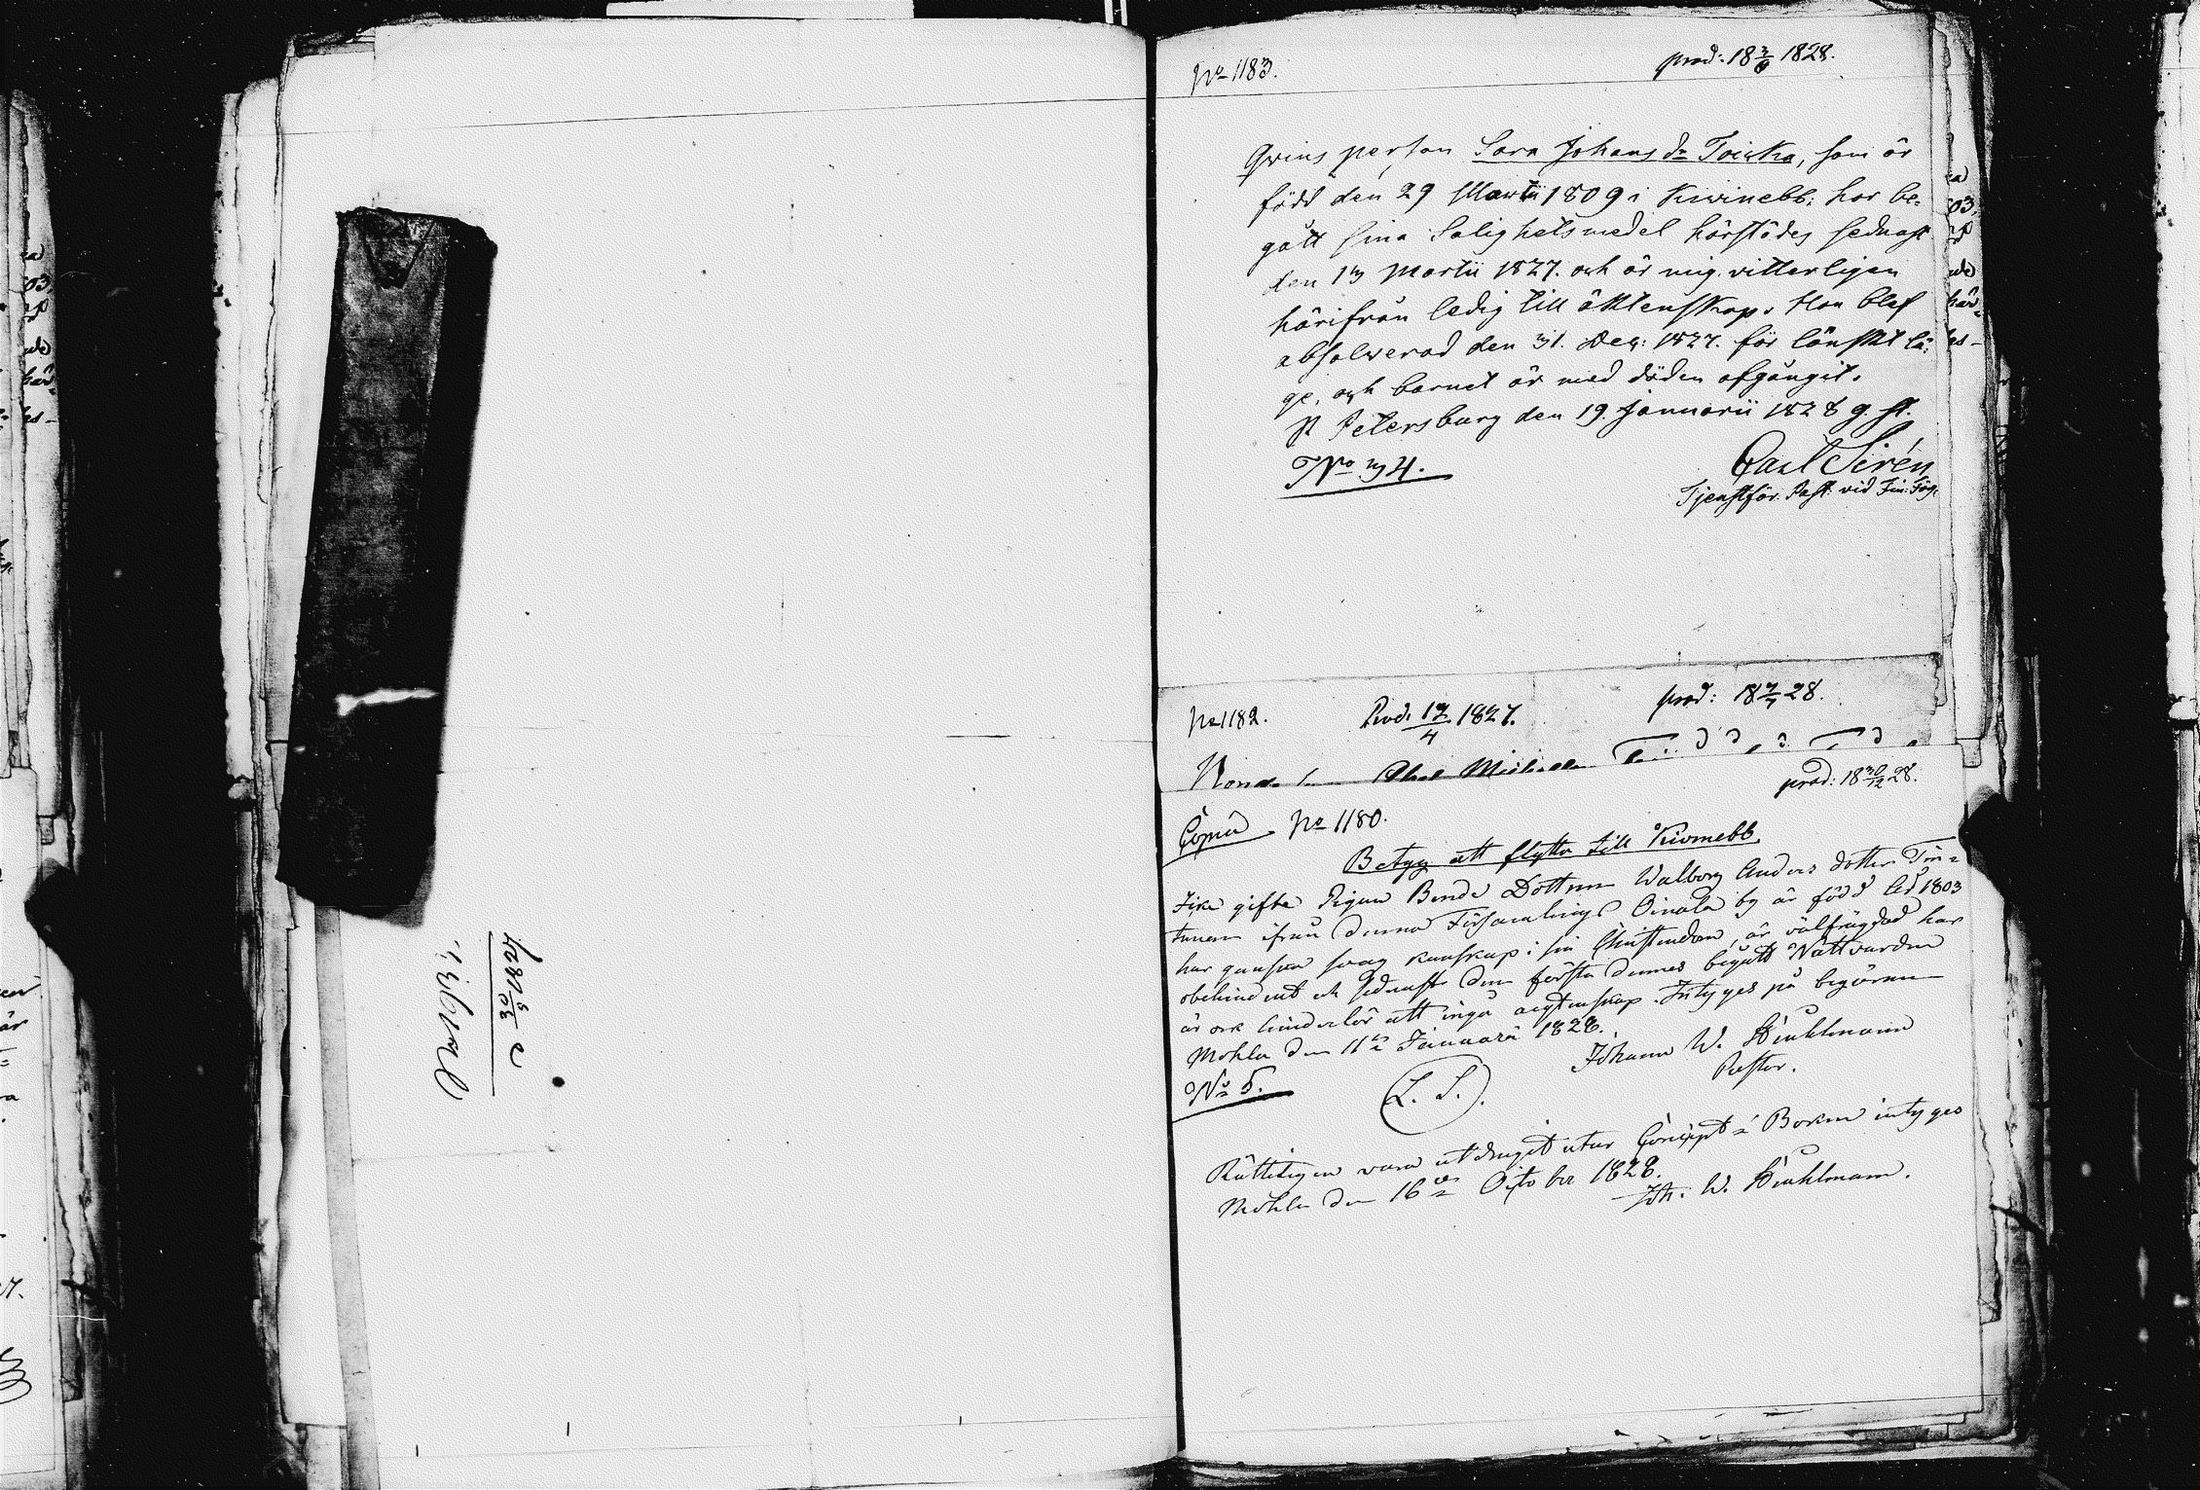 No 1183. prod: 18 3/9 1828.
Qvins person Sara Johans dr Toicka, som är
född den 29 Martii 1809 i Kivinebb; har be-
gått sina Salighetsmedel härstädes sednast
den 13 Martii 1827. och är mig vitterligen
härifrån ledig till äktenskap. Hon blef
absolverad den 31. Dec: 1827. för lönskt lä-
ge, och barnet är med döden afgånget.
St Petersburg den 19. Januarii 1828 g. st.
No 34.
Carl Sirén
Tjenstför. Past. vid Fin: Förs.
No 1182. Prod. 17/4 1827. prod: 18 28.
prod: 18 30/12 28.
Copia No 1180.
Betyg att flytta till Kivinebb.
gifta Pigan Bonde Dottren Walborg Anders dotter
ifrån denna Församlings Oinala by är född År 1803
har ganska svag kunskap i sin Christendom, är välfrägdad har
obehindrat och sednast den första dennes begått Nattvarden
är ock hinderlös att ingå ägtenskap. Intyges på begäran
Mohla den 11te Januarii 1828.
No 5. (L. S.). Johann W.
Pastor.
Rätteligen vara utdraget utur Concept Boken intyges
Mohla den 16de October 1828.
Joh. W.